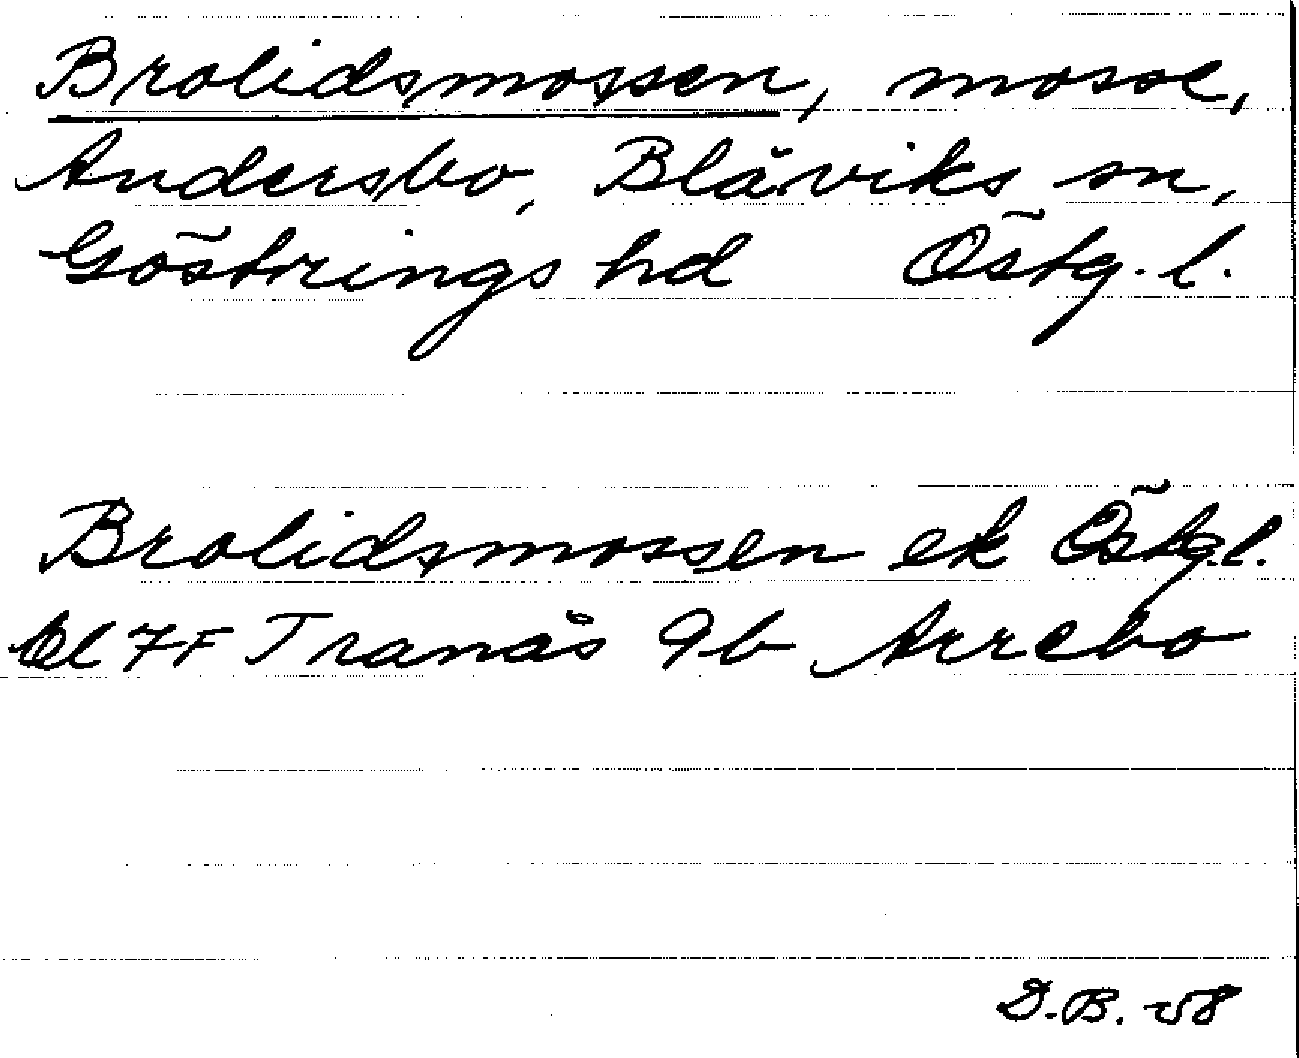 Brolidsmossen, mosse,
Andersbo, Blåviks sn,
Göstrings hd Östg. l.
Brolidsmossen ek Östg.l.
bl 7F Tranås 9b Arrebo
D.B. -58